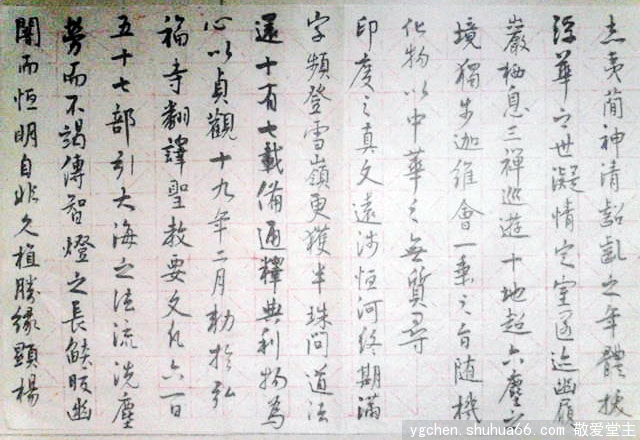 志夷蕳神清齠齔之年體拔
浮華之世凝情定室匿迹幽
巖栖息三禪巡遊十地超六塵之
境獨步迦維會一乘之旨随機
化物以中華之無質尋
印度之真文遠涉恒河終期滿
字頻登雪嶺更獲半珠問道法
還十有七載備通釋典利物為
心以貞觀十九年二月勅於弘
福寺翻譯聖教要文凡六百
五十七部引大海之法流洗塵
勞而不竭傳智燈之長焰皎幽
闇而恒明自非久植勝緣顯揚
ygchen.shuhua66.com 敬爱堂主